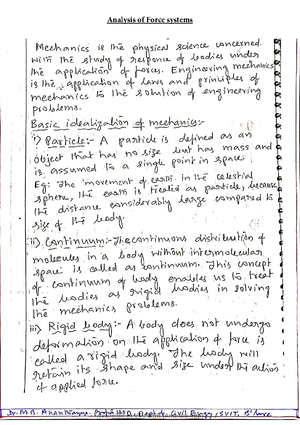 Analysis of Force systems
Mechanics is the physical science concerned
with the study of response of bodies under
the application of forces. Engineering mechanics
is the application of laws and principles of
mechanics to the solution of engineering
problems.
Basic idealization of mechanics:-
i) Particle:- A particle is defined as an
object that has no size but has mass and
is assumed to a single point in space.
Eg: The movement of earth. In the celestial
sphere, the earth is treated as particle, because
the distance considerably large compared to
size of the body.
ii) Continuum:- The continuous distribution of
molecules in a body without intermolecular
space is called as continuum. This concept
of continuum of body enables us to treat
the bodies as rigid bodies in solving
the mechanics problems.
iii) Rigid body:- A body does not undergo
deformation on the application of force is
called a rigid body. The body will
retain its shape and size under the action
of applied force.
Dr. M.B. Civil Engg, SVIT,